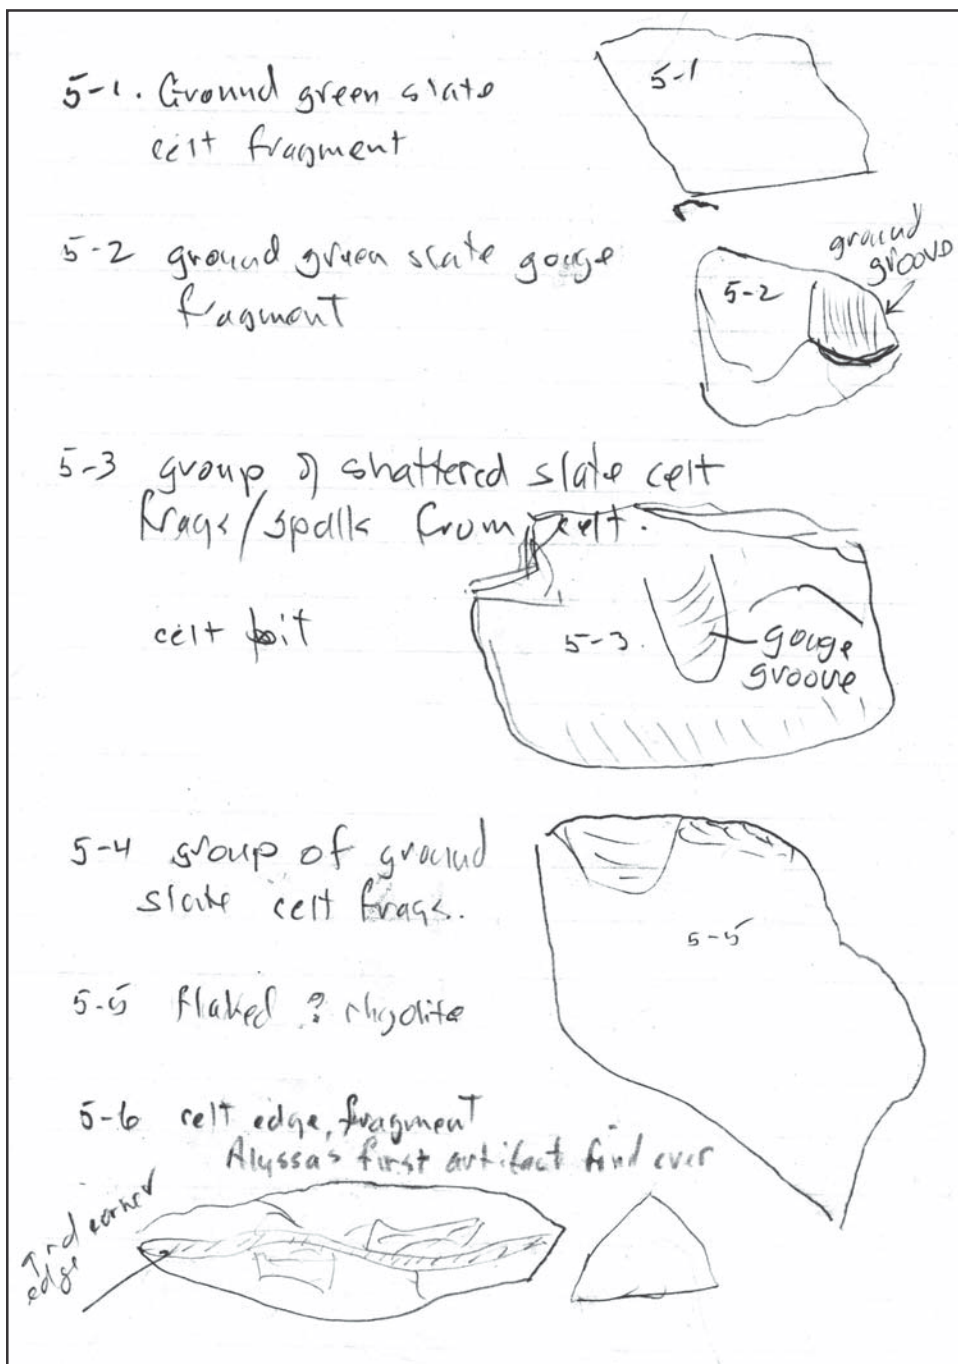 5-1. Ground green slate
celt fragment
5-1
5-2 ground green slate gouge
fragment
5-2
ground
groove
5-3 group of shattered slate celt
frags/spalls from celt.
celt bit
5-3.
gouge
groove
5-4 group of ground
slate celt frags.
5-5
5-5 flaked ? rhyolite
5-6 celt edge, fragment
Alyssa's first artifact find ever
grnd corner
edge